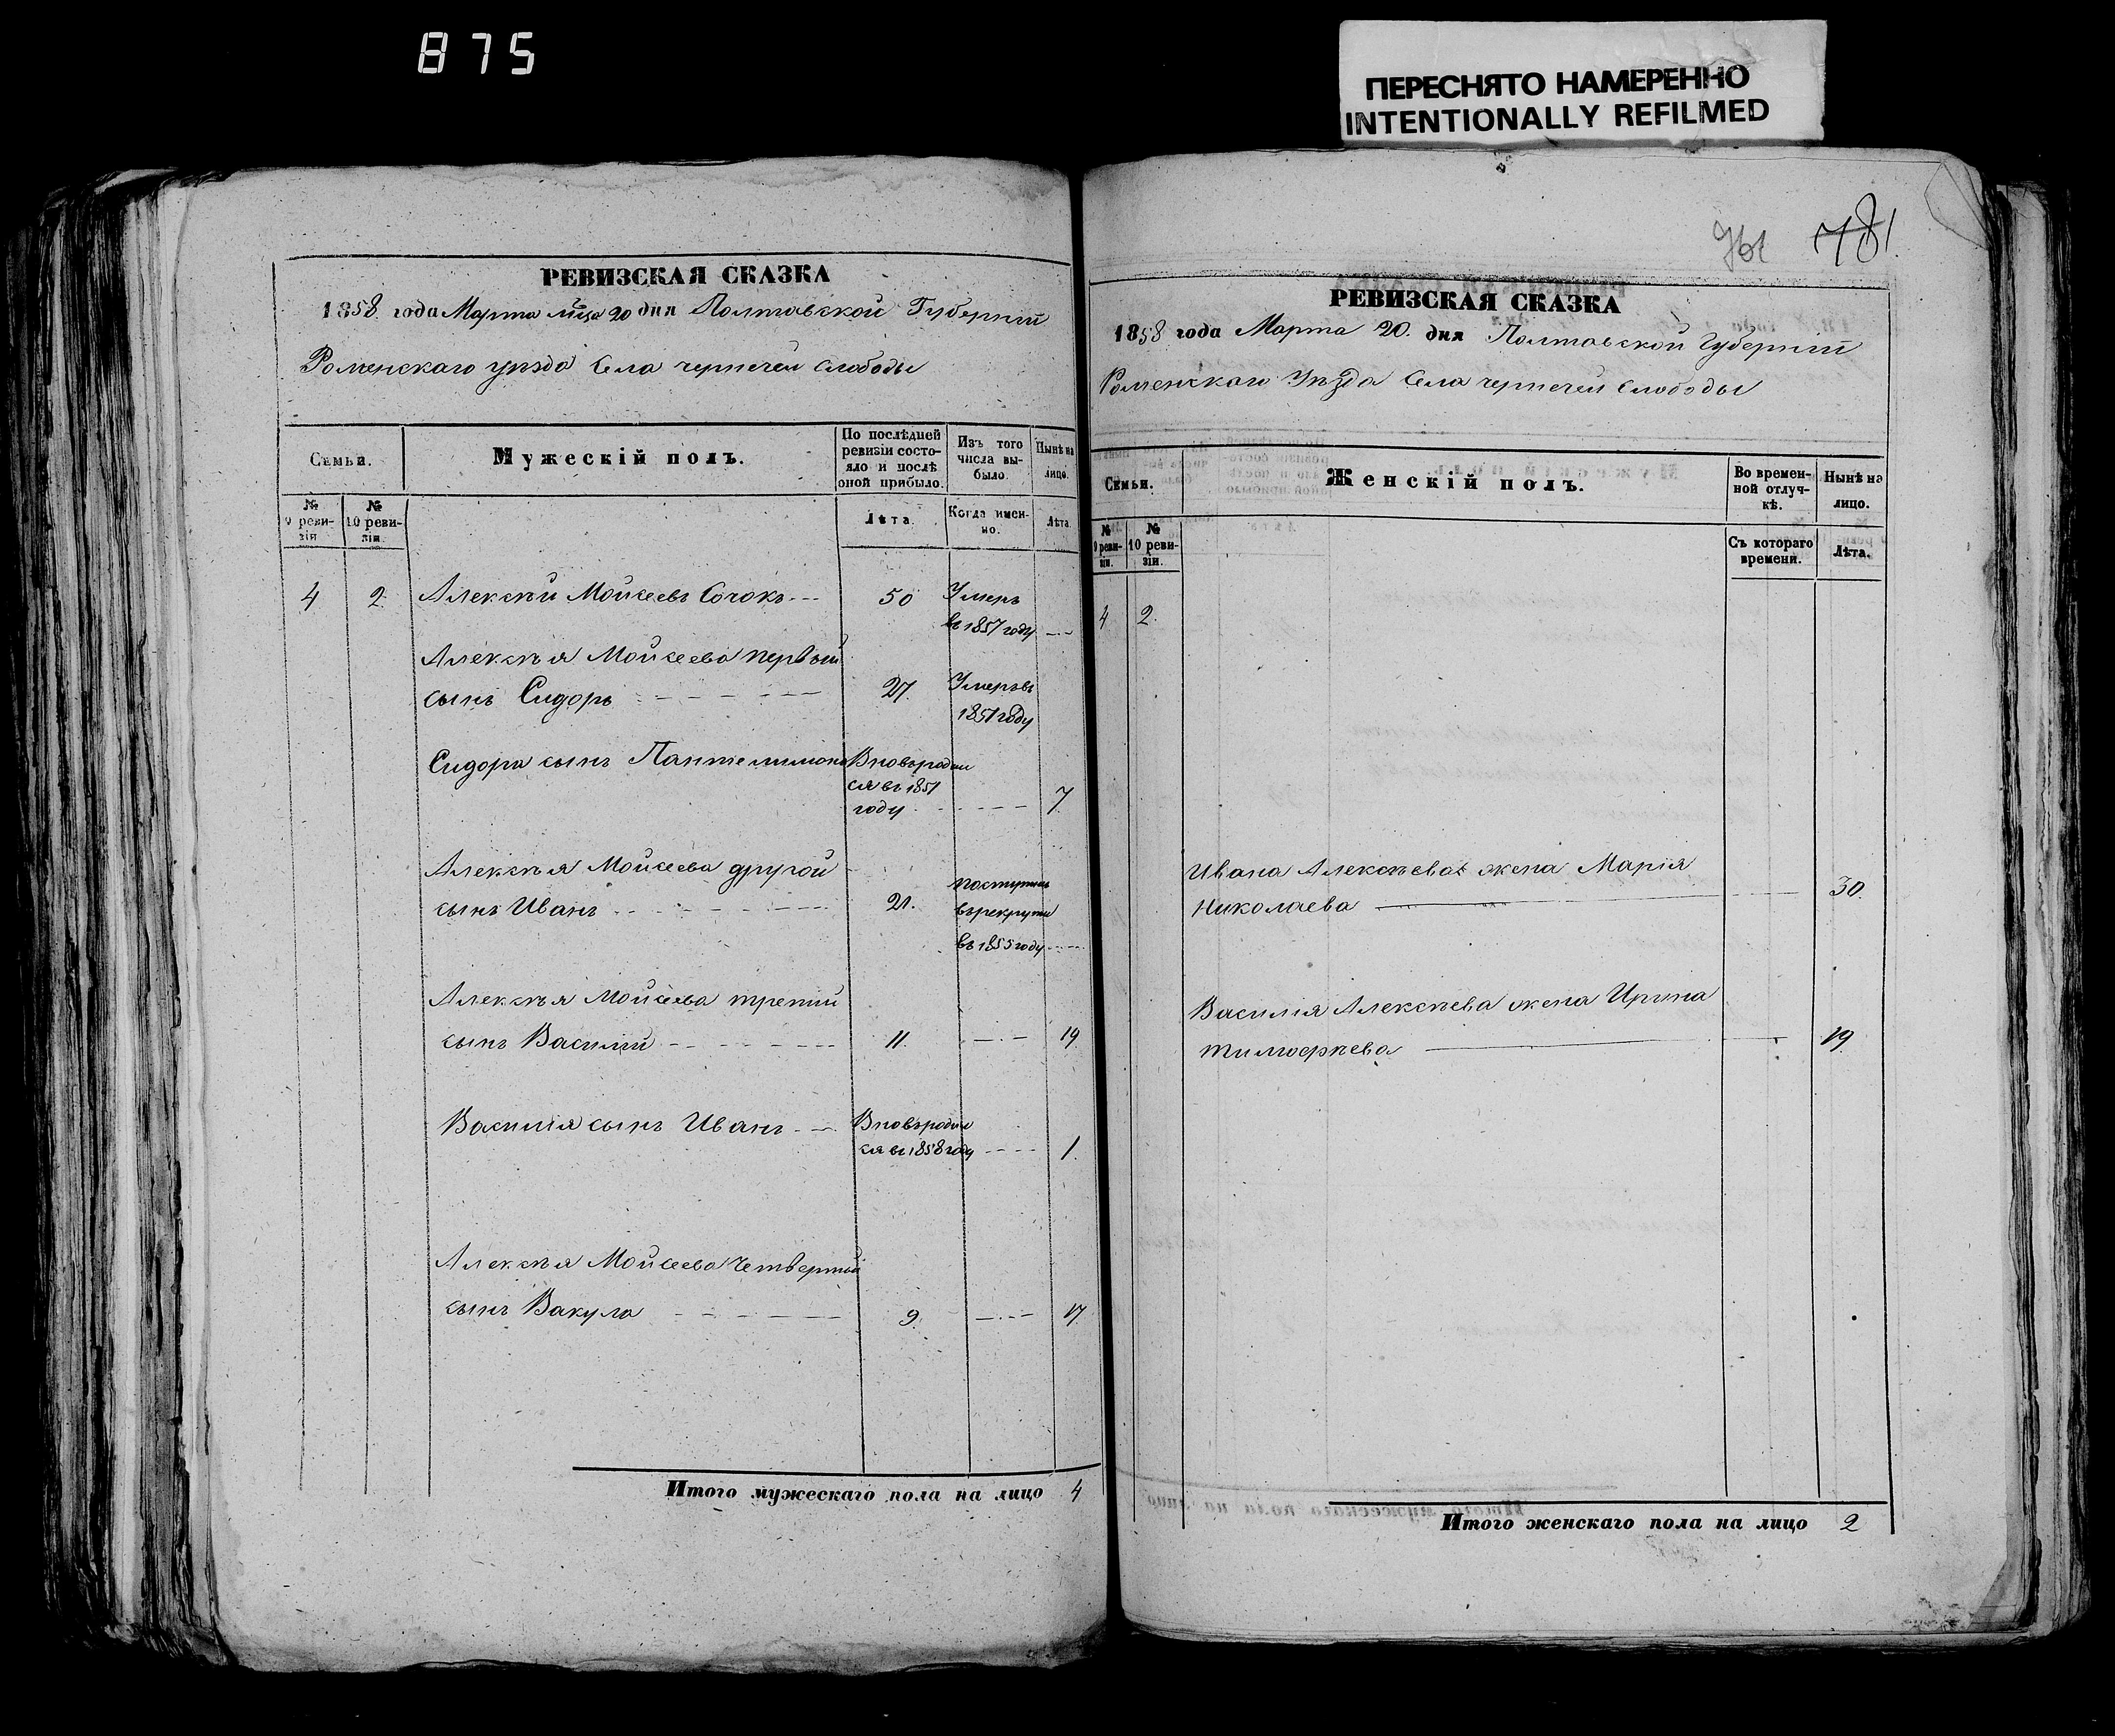 875
ПЕРЕСНЯТО НАМЕРЕННО
INTENTIONALLY REFILMED
РЕВИЗСКАЯ СКАЗКА
1858 года Марта м̃ца 20 дня Полтавской Губерніи
Роменскаго уѣзда Села чернечей слободы
Семьи.
Мужескій полъ.
По послѣдней ревизіи состояло и послѣ оной прибыло.
Изъ того числа выбыло.
Нынѣ на лицо.
№ 9 ревизіи
№ 10 ревизіи.
Лѣта.
Когда именно.
Лѣта.
4 2 Алексѣй Мойсеевъ Сочокъ 50 Умеръ
въ 1857 году
Алексѣя Мойсеева первый
сынъ Сидоръ 27. Умеръ въ
1851 году
Сидора сынъ Пантелимонъ Вновь родил
ся въ 1851
году 7
Алексѣя Мойсеева другой
сынъ Иванъ 21. поступилъ
въ рекруты
въ 1855 году
Алексѣя Мойсеева третій
сынъ Василій 11. 19
Василія сынъ Иванъ Вновь родил
ся въ 1858 году 1.
Алексѣя Мойсеева четвертый
сынъ Вакула 9. 17
Итого мужескаго пола на лицо 4
781.
РЕВИЗСКАЯ СКАЗКА
1858 года Марта 20. дня Полтавской Губерніи
Роменскаго Уѣзда Села чернечей слободы
Семьи.
Женскій полъ.
Во временной отлучкѣ.
Нынѣ на лицо.
№ 9 ревизіи.
№ 10 ревизіи.
Съ котораго времени.
Лѣта.
4 2.
Ивана Алексѣева жена Марія
Николаева 30.
Василія Алексѣева жена Ирина
тимофѣева 19.
Итого женскаго пола на лицо 2